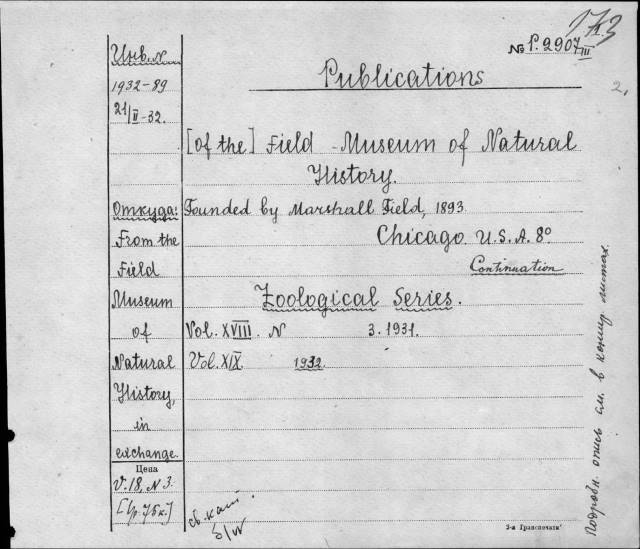 173
№ P.2907/III
2,
Инв. N
1932-89
21/II-32.
Publications
[of the] Field-Museum of Natural
History.
Откуда:
From the
Field
Museum
of
Natural
History,
in
exchange.
Founded by Marshall Field, 1893
Chicago. U.S.A. 8°
Continuation
Zoological Series.
Vol. XVIII. N 3. 1931.
Vol. XIX. 1932.
Цена
V.18, N 3.
[1р.75к.]
св. кат.
Подробн. опись см. в концу. листах.
2-я Гранспечать